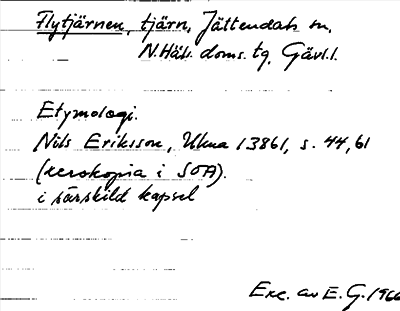 Flytjärnen, tjärn, Jättendals sn,
N.Häls. doms. tg, Gävl.l.
Etymologi.
Nils Eriksson, Ulma 13861, s. 44, 61
(xerokopia i SOA).
i särskild kapsel
Exc. av E. G. 1966